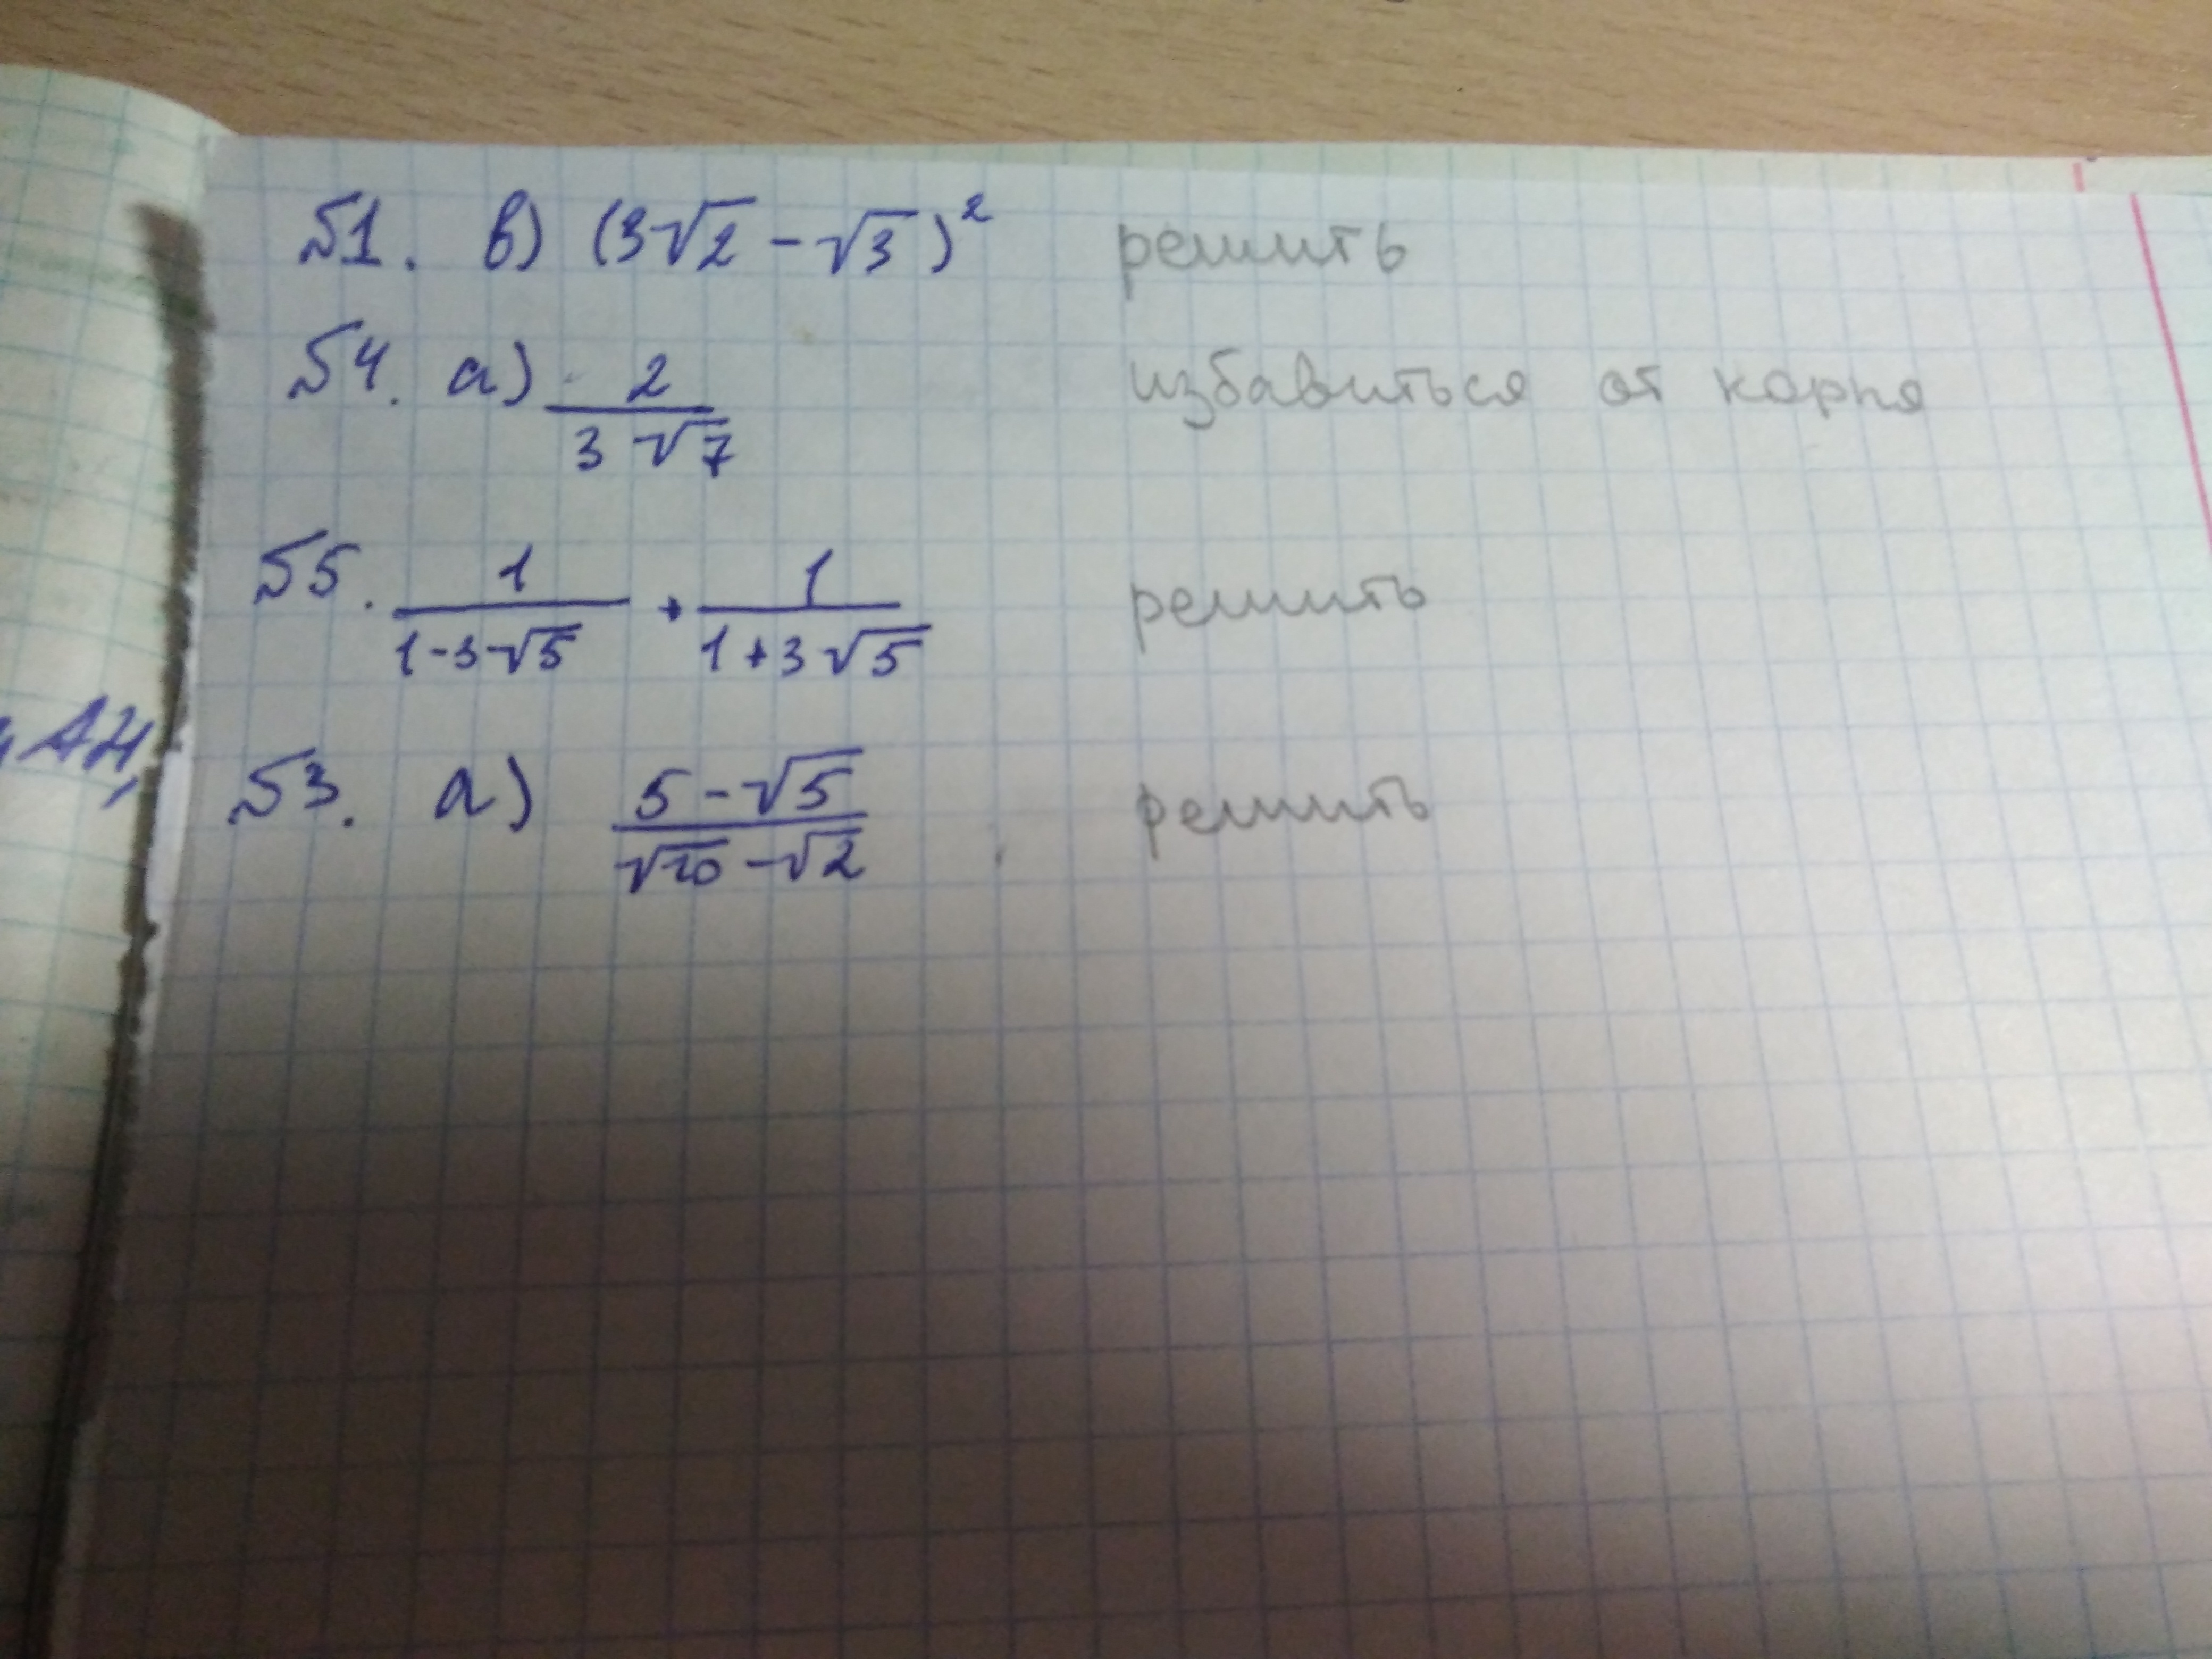 №1. в) (3√2 - √3)² решить
№4. а) 2/(3√7) избавиться от корня
№5. 1/(1-3√5) + 1/(1+3√5) решить
АН,
№3. а) (5-√5)/(√10-√2) решить